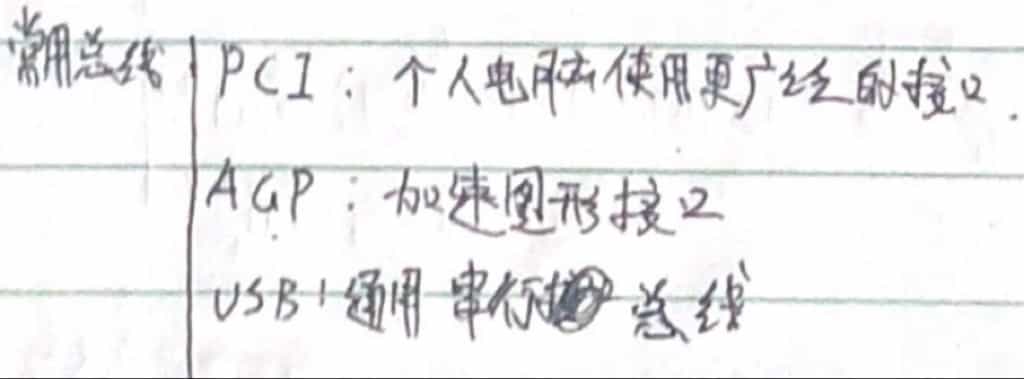 常用总线
PCI：个人电脑使用更广泛的接口.
AGP：加速图形接口
USB：通用串行总线